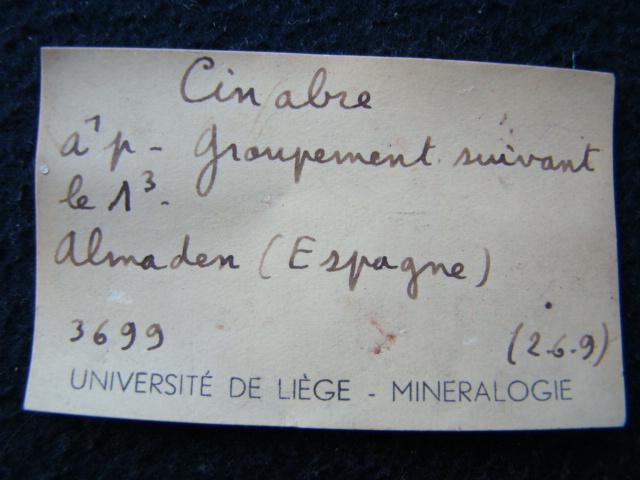 Cinabre
a¹p - Groupement suivant
le Λ³.
Almaden (Espagne)
3699 (2.6.9)
UNIVERSITÉ DE LIÈGE - MINERALOGIE